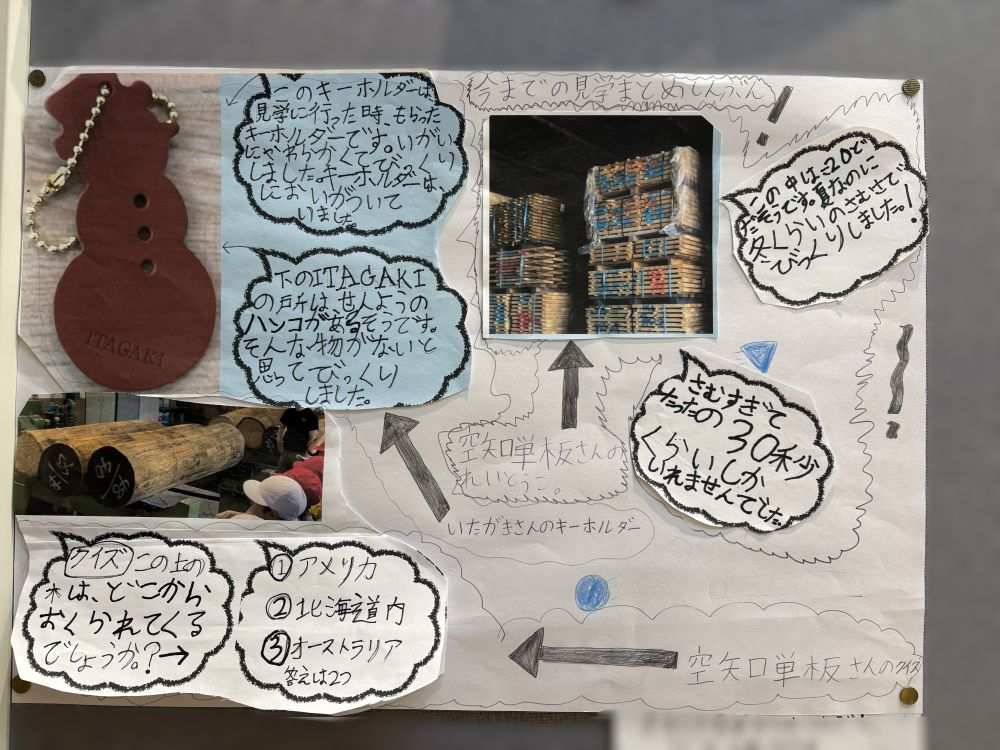 今までの見学まとめしんぶん
このキーホルダーは、
見学に行った時、もらった
キーホルダーです。いがい
にやわらかくてびっくり
しました。キーホルダーは、
においがついて
いました。
下のITAGAKI
の所は、せんようの
ハンコがあるそうです。
そんな物がないと
思ってびっくり
しました。
ITAGAKI
この中は-20ど
だそうです。夏なのに
冬くらいのさむさで
びっくりしました。!
さむすぎて
たったの30秒
くらいしか
いれませんでした。
空知単板さんの
れいとうこ。
いたがきさんのキーホルダー
クイズ この上の
木は、どこから
おくられてくる
でしょうか。?→
①アメリカ
②北海道内
③オーストラリア
答えは2つ
空知単板さんのクイズ